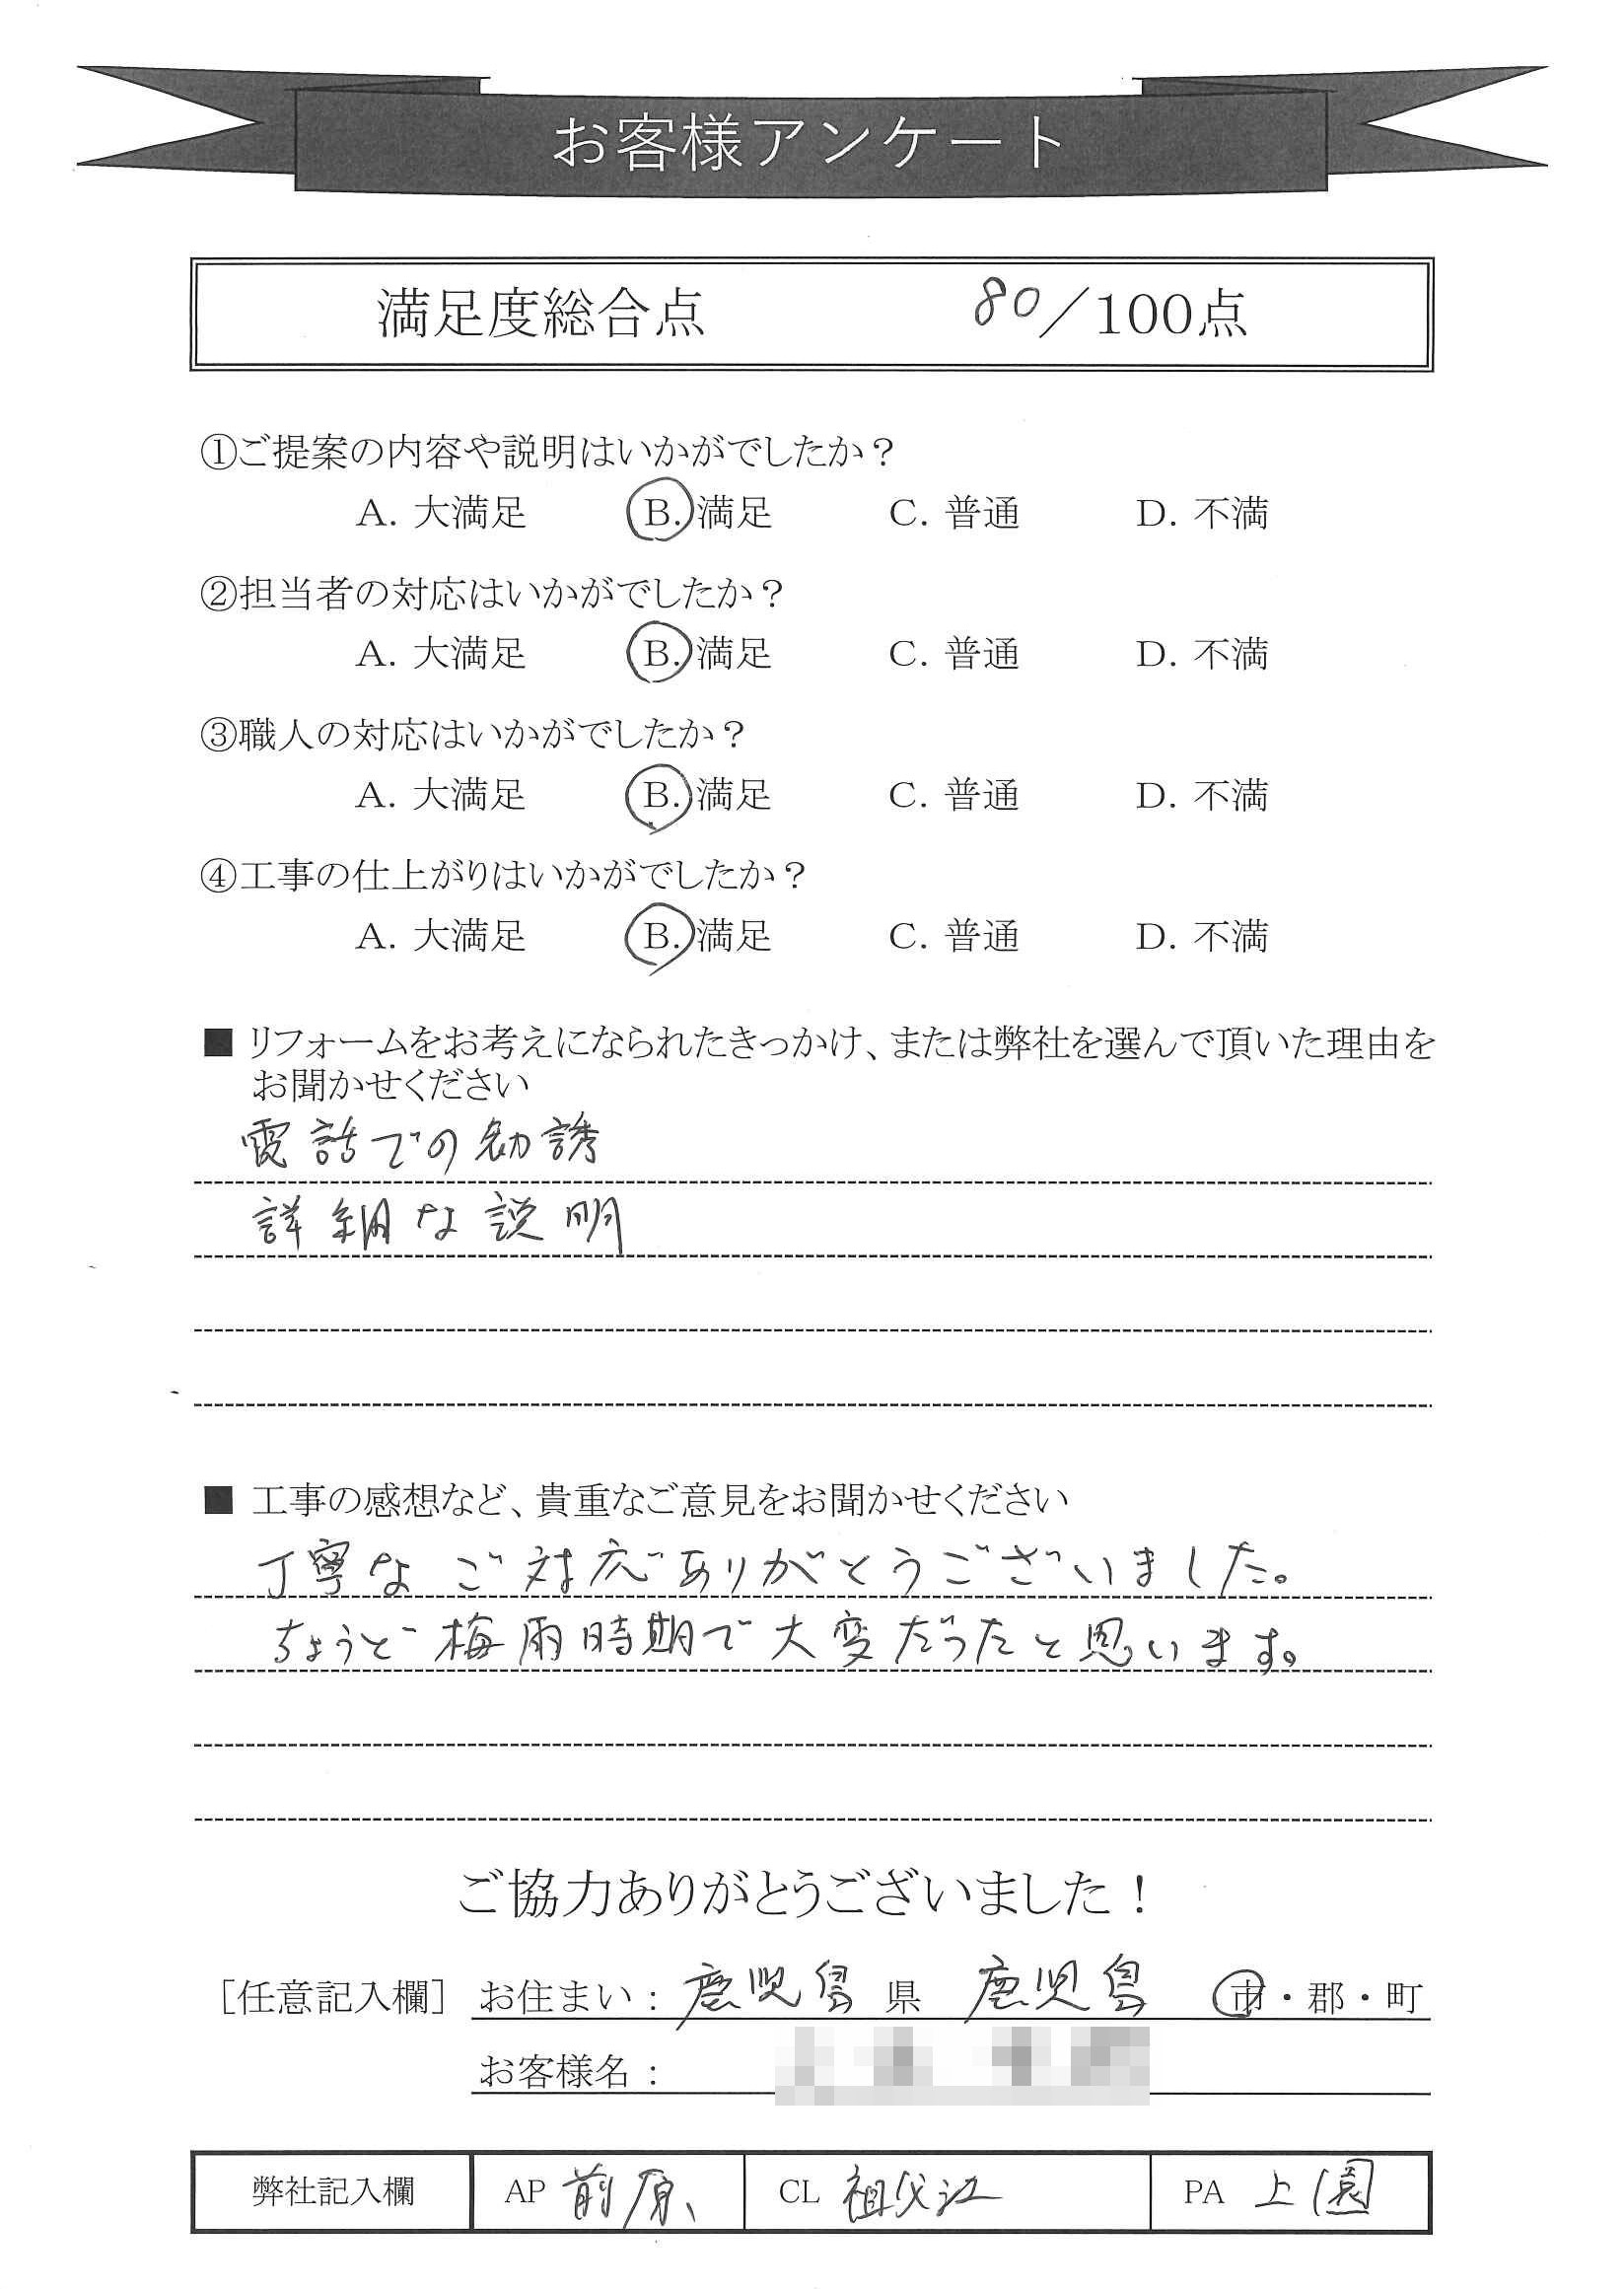 お客様アンケート
満足度総合点 80/100点
①ご提案の内容や説明はいかがでしたか？
A. 大満足 B. 満足 C. 普通 D. 不満
②担当者の対応はいかがでしたか？
A. 大満足 B. 満足 C. 普通 D. 不満
③職人の対応はいかがでしたか？
A. 大満足 B. 満足 C. 普通 D. 不満
④工事の仕上がりはいかがでしたか？
A. 大満足 B. 満足 C. 普通 D. 不満
■ リフォームをお考えになられたきっかけ、または弊社を選んで頂いた理由を
お聞かせください
電話での勧誘
詳細な説明
■ 工事の感想など、貴重なご意見をお聞かせください
丁寧なご対応ありがとうございました。
ちょうど梅雨時期で大変だったと思います。
ご協力ありがとうございました！
［任意記入欄］ お住まい：鹿児島 県 鹿児島 市・郡・町
お客様名：
弊社記入欄 AP 前原 CL 祖父江 PA 上園